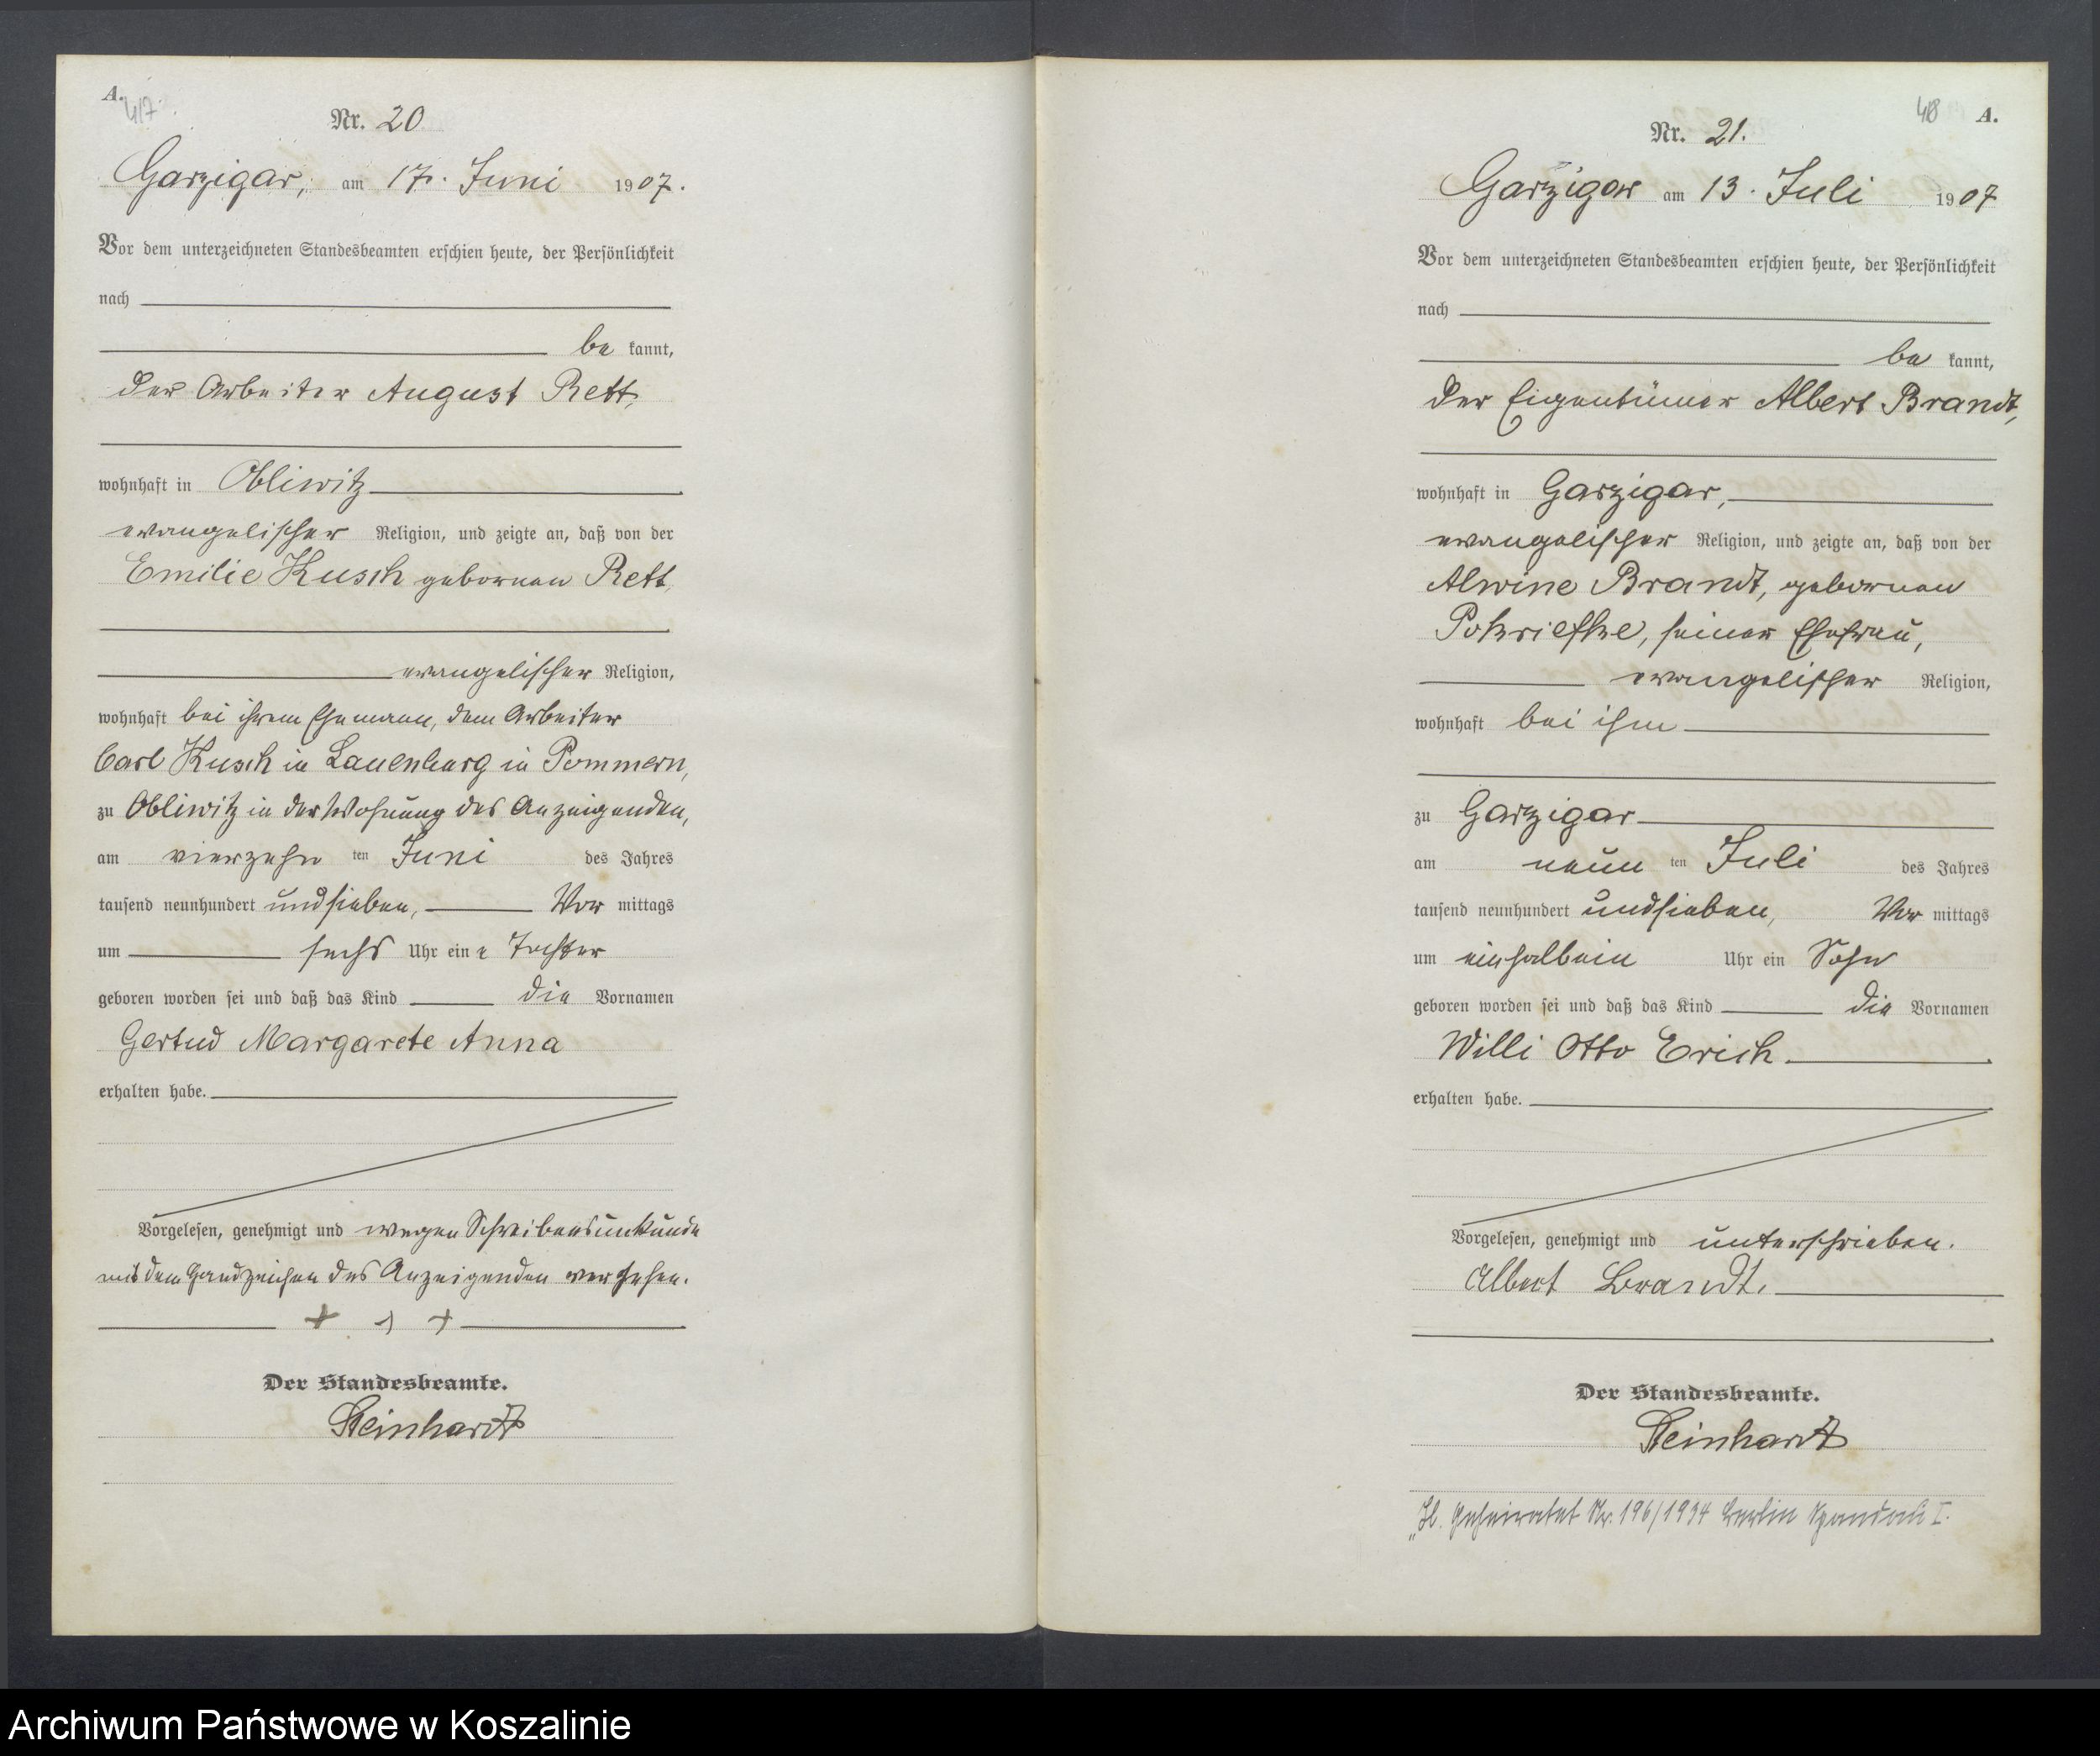 A.
47.
Nr. 20
Garzigar, am 17. Juni 1907.
Vor dem unterzeichneten Standesbeamten erschien heute, der Persönlichkeit
nach
be kannt,
der Arbeiter August Rett,
wohnhaft in Obliwitz
evangelischer Religion, und zeigte an, daß von der
Emilie Kusch gebornen Rett,
evangelischer Religion,
wohnhaft bei ihrem Ehemann, dem Arbeiter
Carl Kusch in Lauenburg in Pommern,
zu Obliwitz in der Wohnung des Anzeigenden,
am vierzehn ten Juni des Jahres
tausend neunhundert und sieben, Vor mittags
um sechs Uhr eine Tochter
geboren worden sei und daß das Kind die Vornamen
Gertud Margarete Anna
erhalten habe.
Vorgelesen, genehmigt und wegen Schreibensunkunde
mit dem Handzeichen des Anzeigenden versehen.
+ + +
Der Standesbeamte.
Steinhardt
48 A.
Nr. 21.
Garzigar am 13. Juli 1907
Vor dem unterzeichneten Standesbeamten erschien heute, der Persönlichkeit
nach
be kannt,
der Eigentümer Albert Brandt,
wohnhaft in Garzigar,
evangelischer Religion, und zeigte an, daß von der
Alwine Brandt, gebornen
Pokriefke, seiner Ehefrau,
evangelischer Religion,
wohnhaft bei ihm
zu Garzigar
am neun ten Juli des Jahres
tausend neunhundert und sieben, Vor mittags
um einhalbein Uhr ein Sohn
geboren worden sei und daß das Kind die Vornamen
Willi Otto Erich
erhalten habe.
Vorgelesen, genehmigt und unterschrieben.
Albert Brandt.
Der Standesbeamte.
Steinhardt
Geheiratet Nr. 196/1934 Berlin Spandau I.
Archiwum Państwowe w Koszalinie